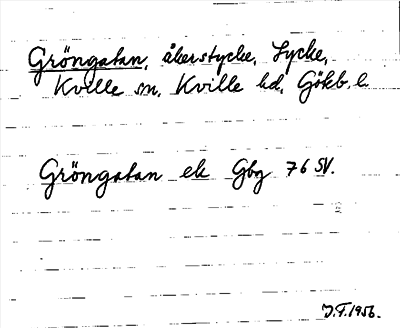 Gröngatan, åkerstycke, Lycke,
Kville sn, Kville hd, Göteb. l.
Gröngatan ek Gbg 76 SV.
J.F. 1956.